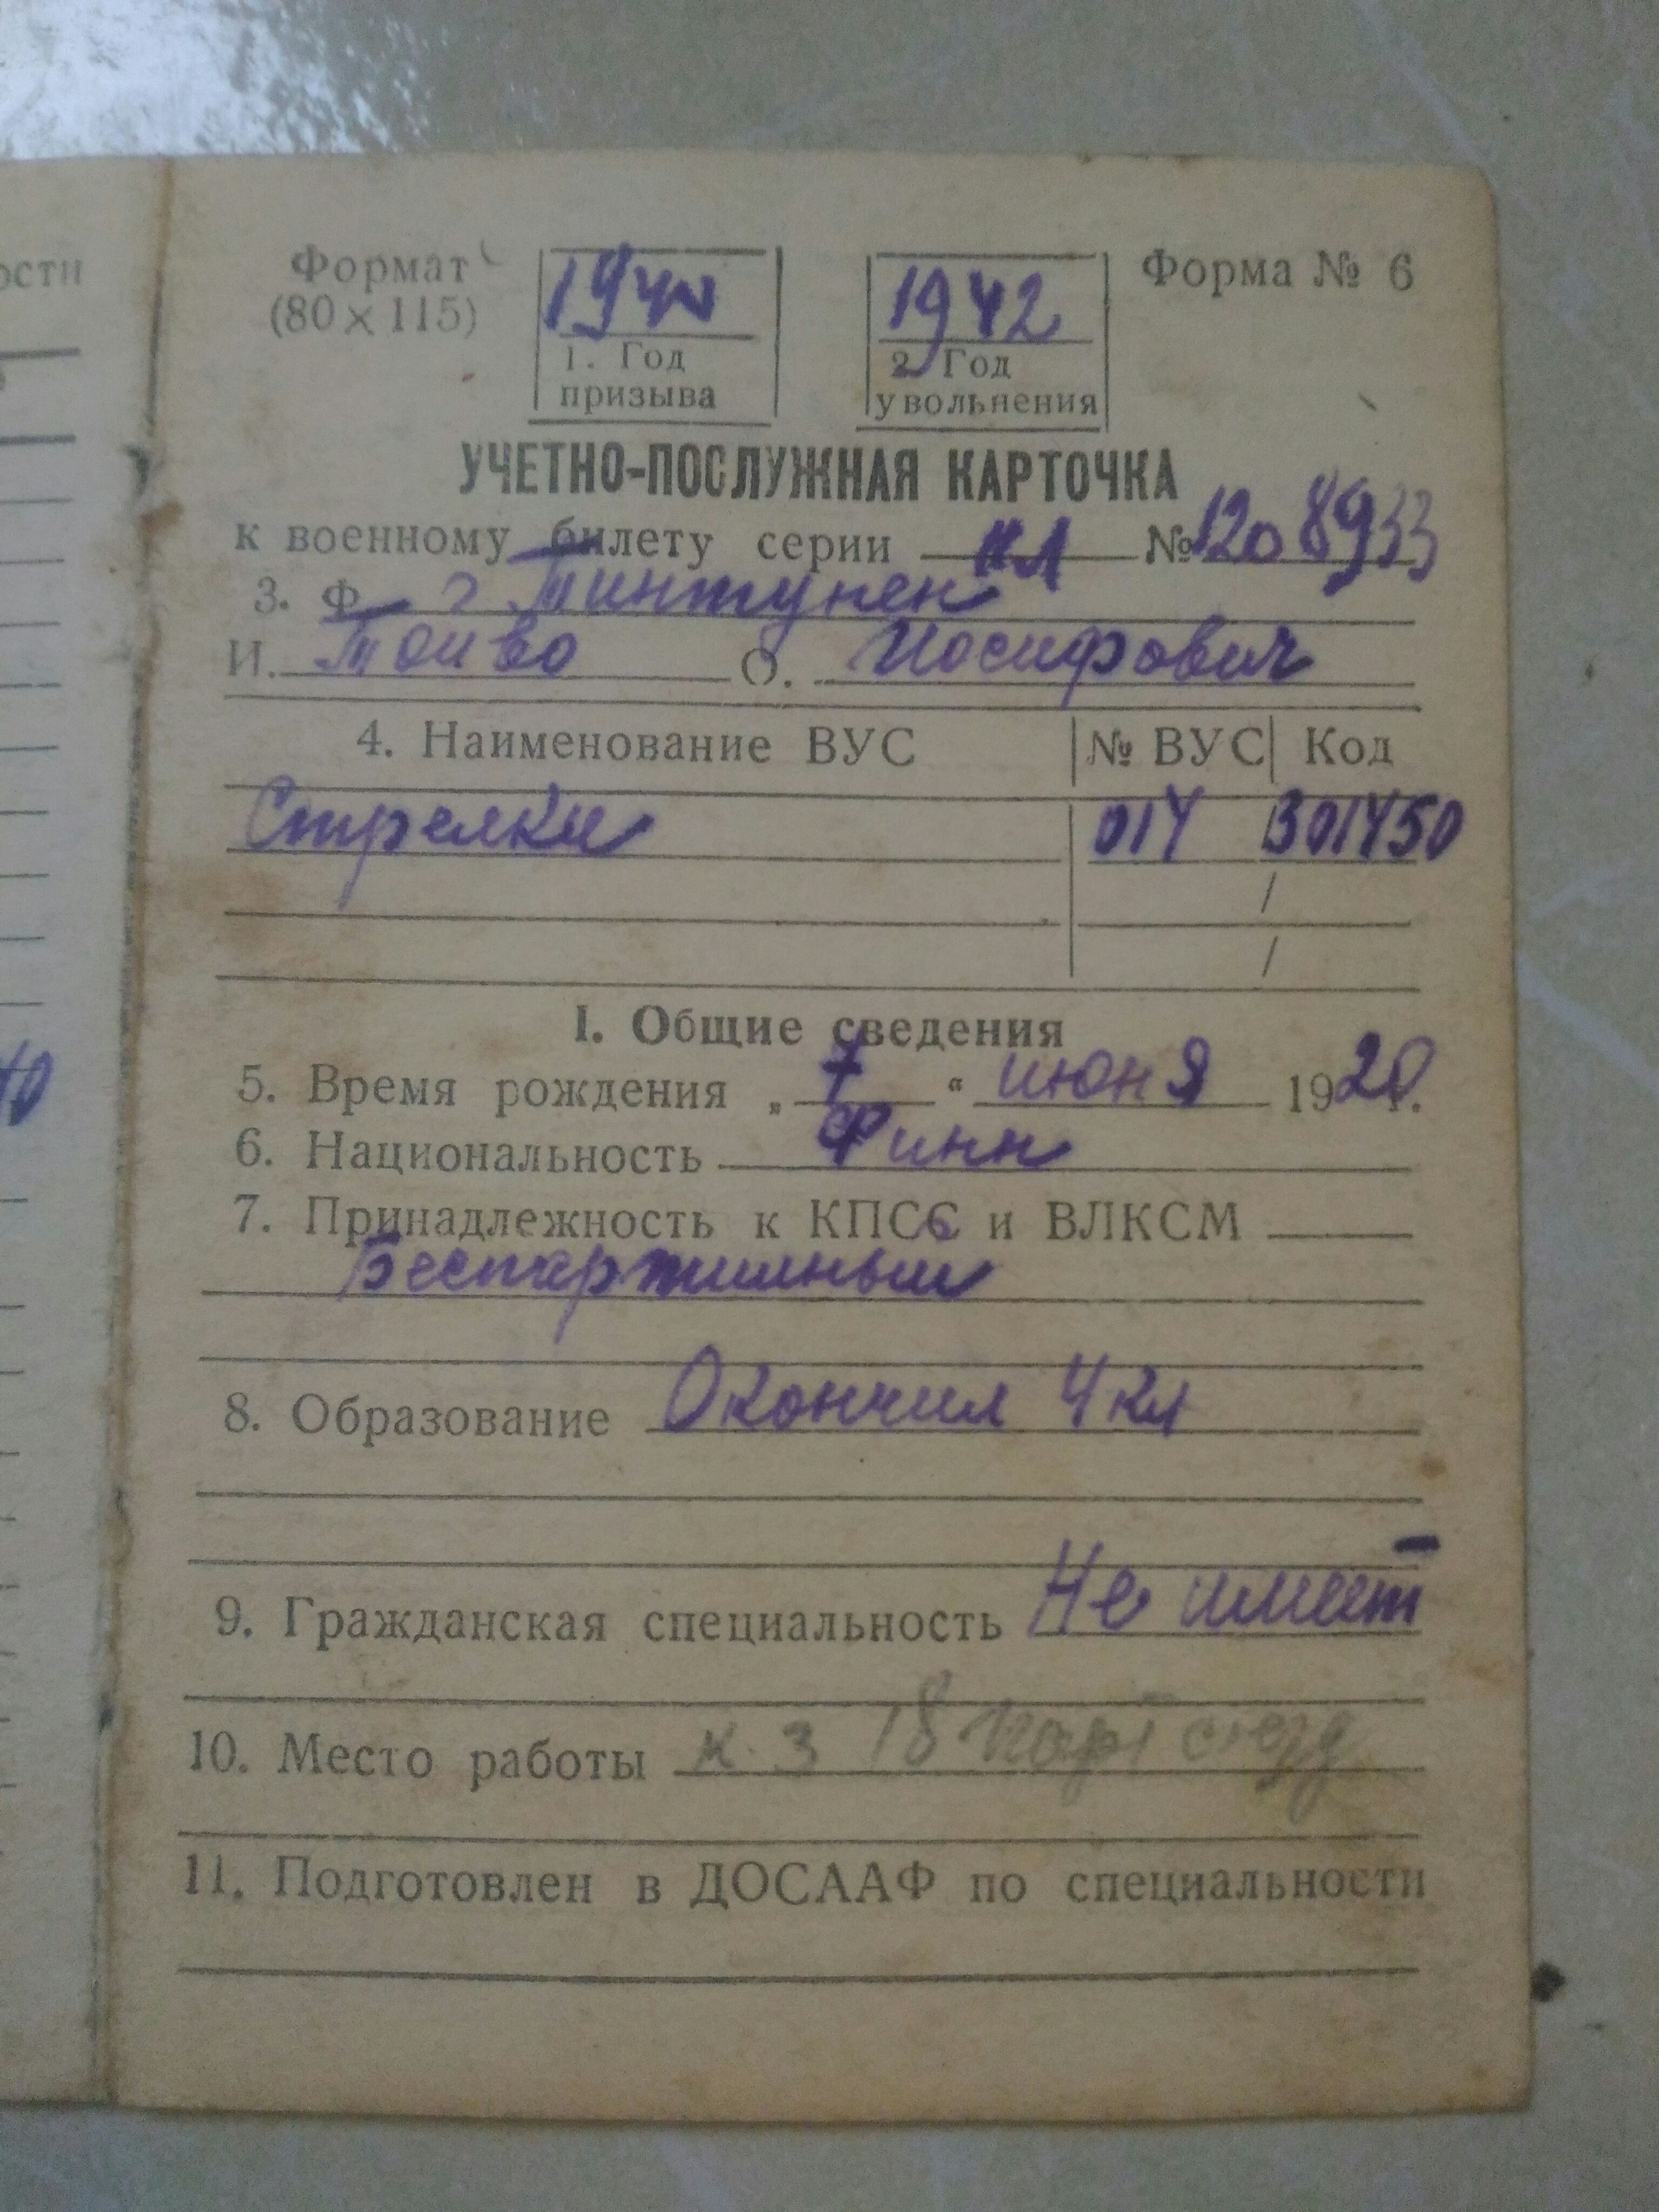 ости
Формат
(80×115)
1942
Форма № 6
1. Год
призыва
2. Год
увольнения
УЧЕТНО-ПОСЛУЖНАЯ КАРТОЧКА
к военному билету серии НЛ № 1208933
3. Ф. Тинтунен
И. Тойво О. Иосифович
4. Наименование ВУС № ВУС Код
Стрелки 014 301450
I. Общие сведения
5. Время рождения „ 7 “ июня 1920 г.
6. Национальность Финн
7. Принадлежность к КПСС и ВЛКСМ
Беспартийный
8. Образование Окончил 4 кл
9. Гражданская специальность Не имеет
10. Место работы к. з 18 парт съезд
11. Подготовлен в ДОСААФ по специальности